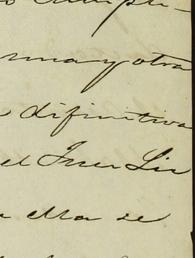 cumple-
una y otra
difinitiva
el Juez Lic
a ella se